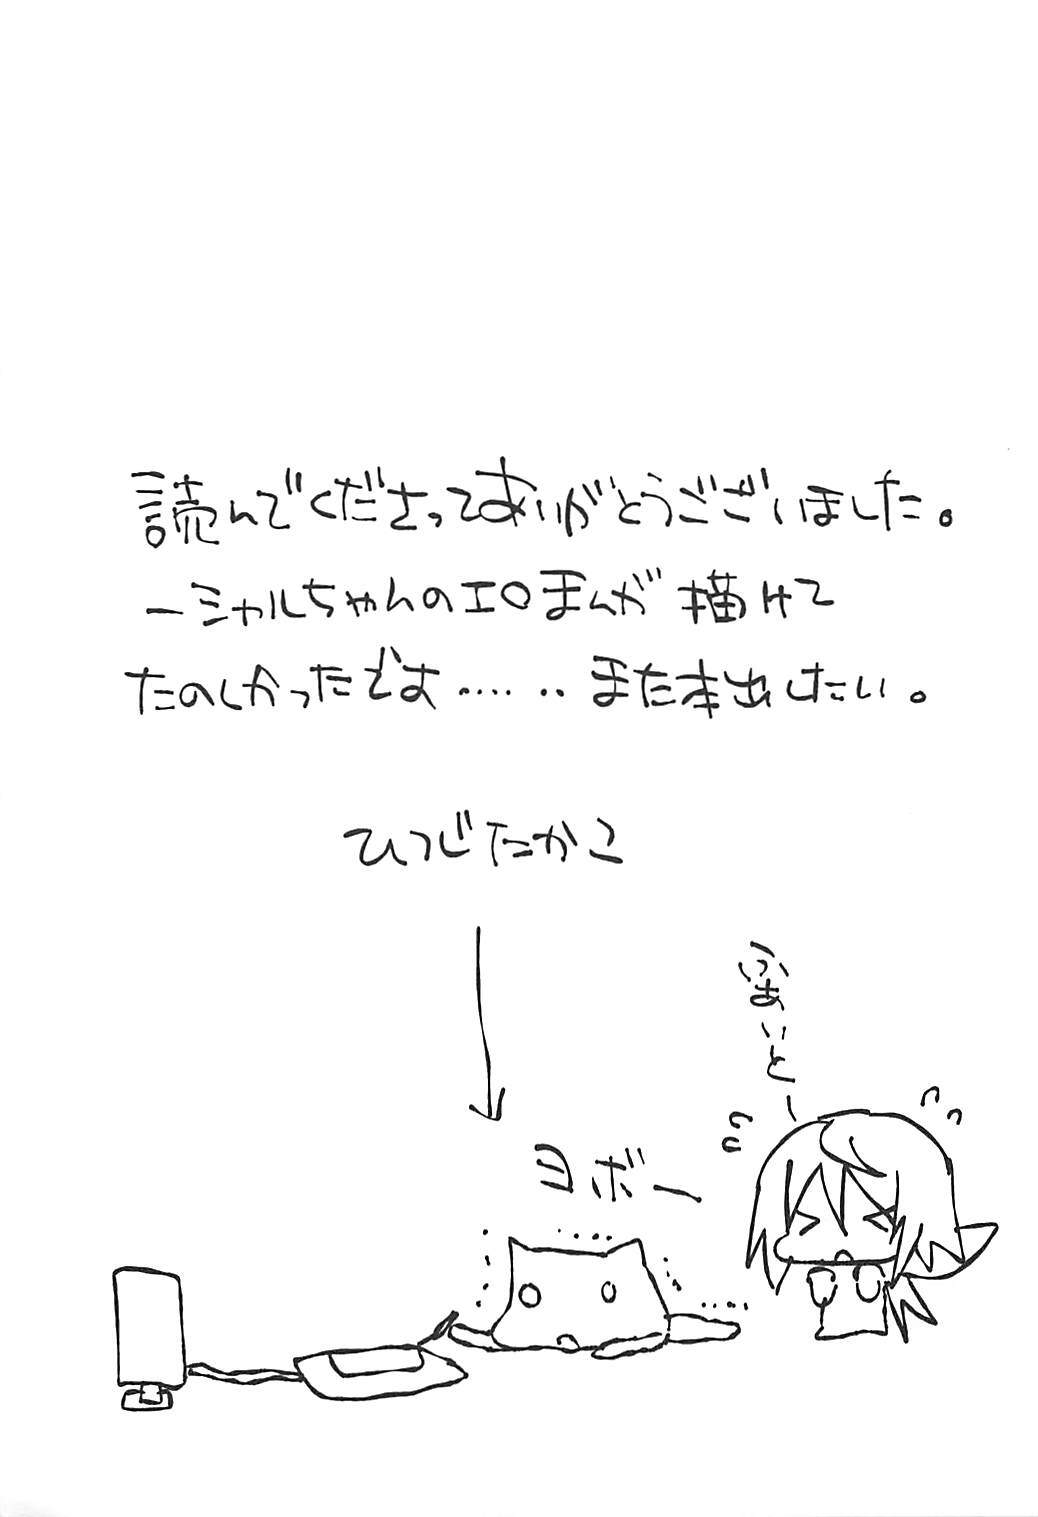 読んでくださってありがとうございました。
ーシャルちゃんのエロまんが描けて
たのしかったです……‥また本出したい。
ひつじたかこ
ふぁいとー
ヨボー